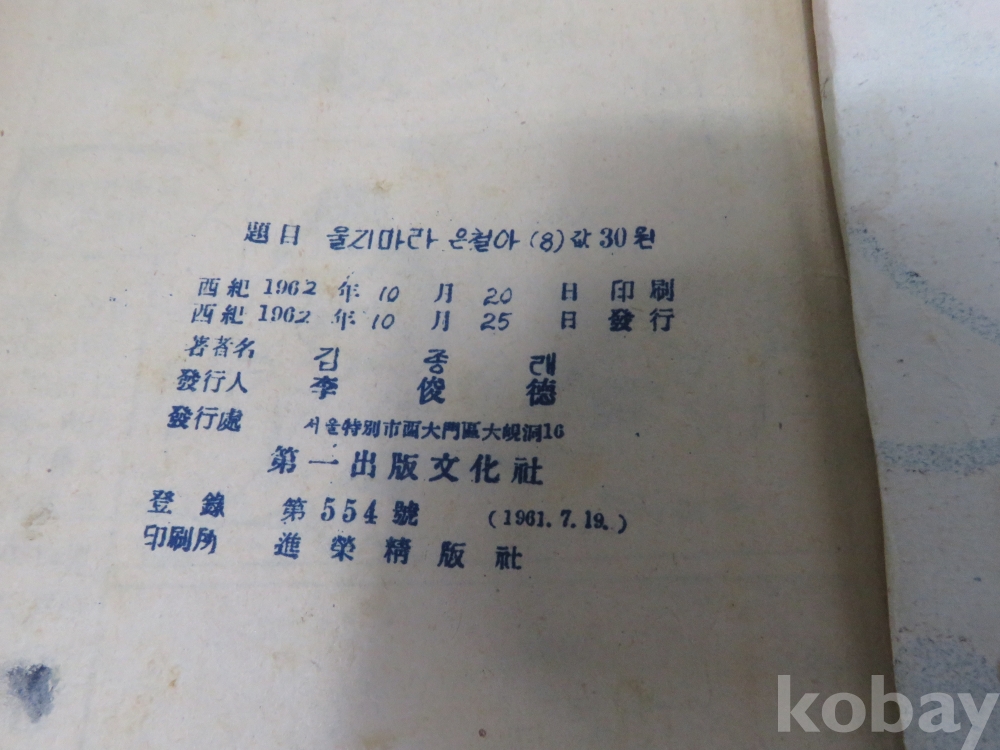 題目 울지마라 은철아 (8) 값 30원
西紀 1962 年 10 月 20 日 印刷
西紀 1962 年 10 月 25 日 發行
著者名 김종래
發行人 李俊德
發行處 서울特別市西大門區大峴洞16
第一出版文化社
登錄 第554號 (1961.7.19.)
印刷所 進榮精版社
kobay